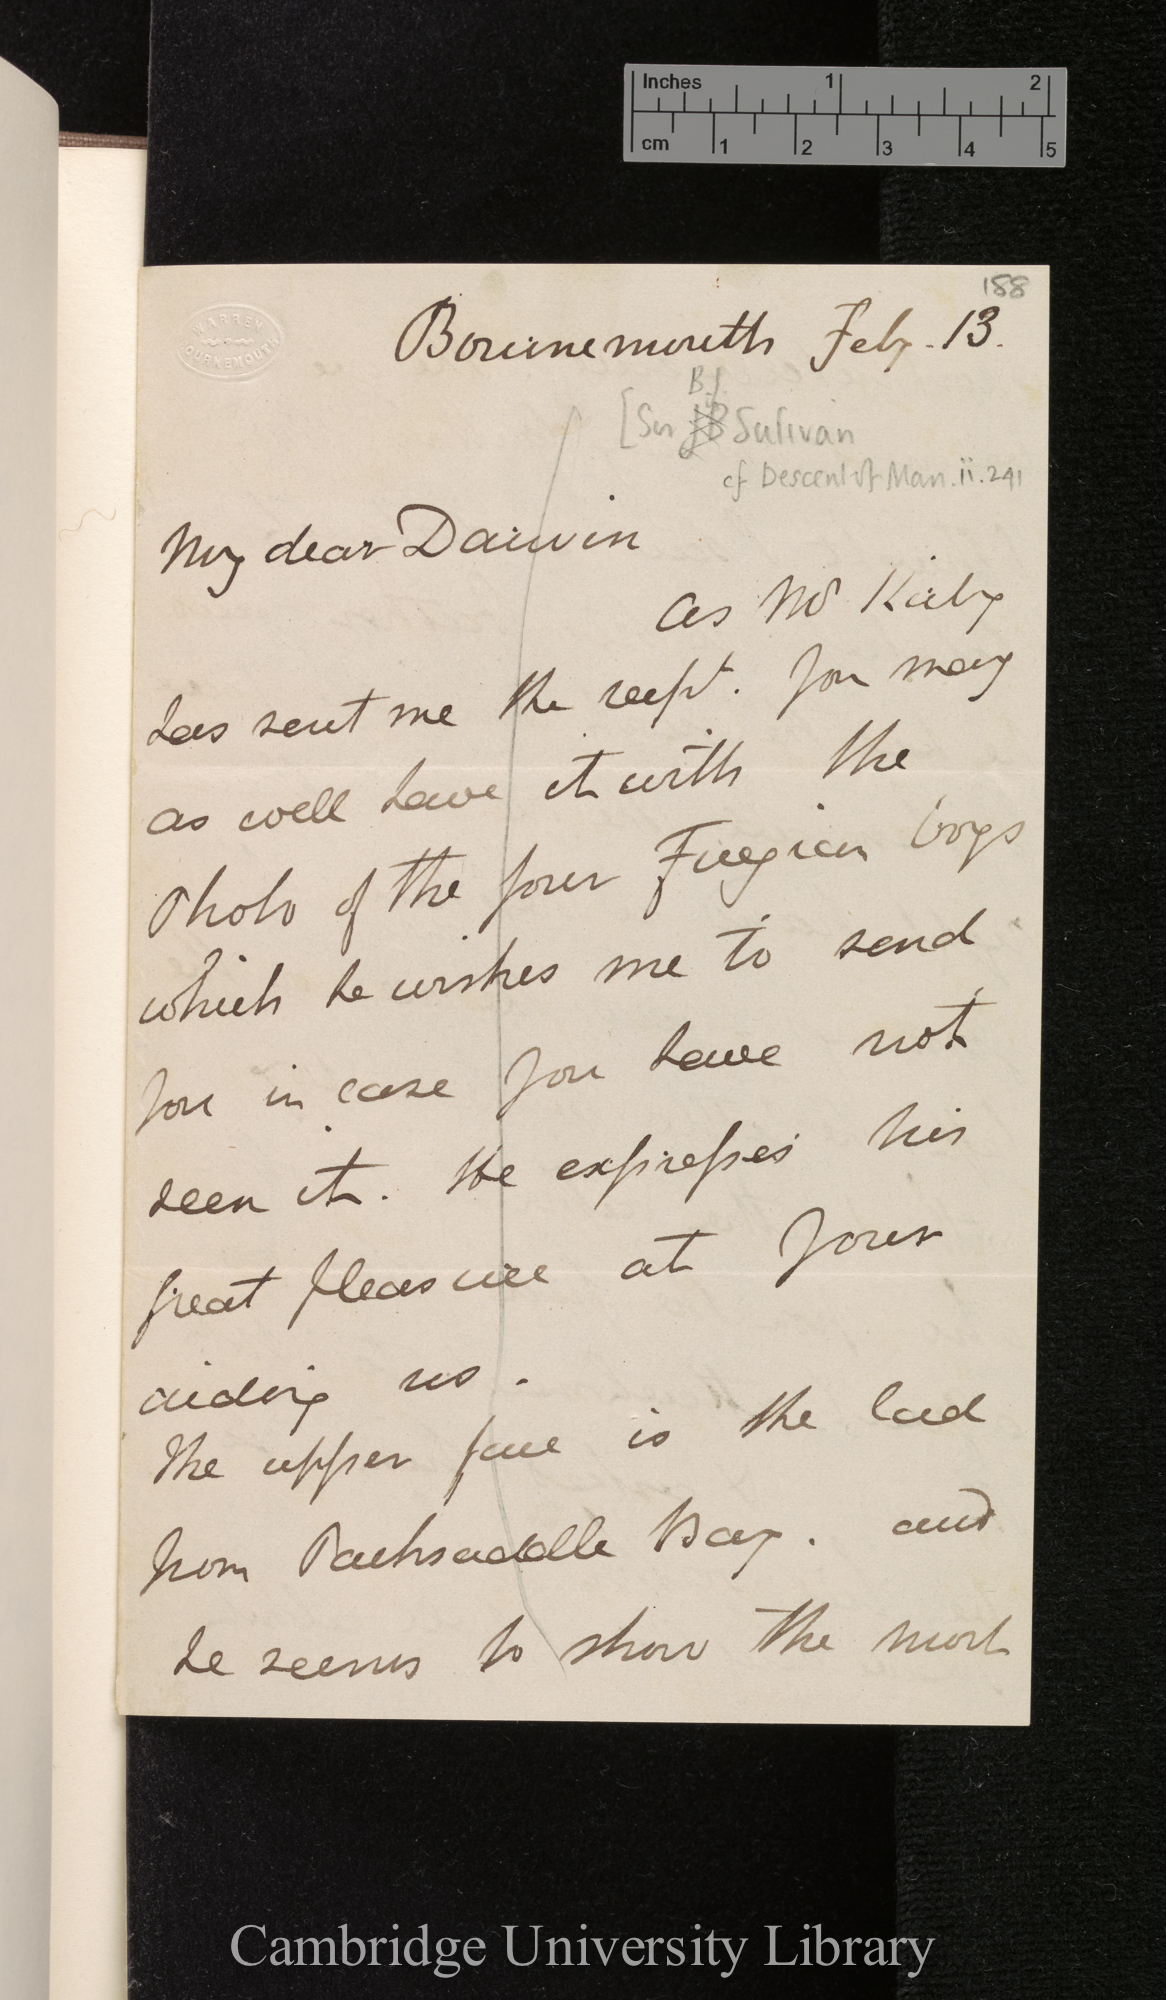 Inches 1 2
cm 1 2 3 4 5
188
WARREN
BOURNEMOUTH
Bournemouth Feby. 13.
B J
[Sir Sulivan
cf Descent of Man. ii. 241
My dear Darwin
as Mr Kirby
has sent me the recpt. you may
as well have it with the
Photo of the four Fuegian boys
which he wishes me to send
you in case you have not
seen it. He expresses his
great pleasure at your
aiding us.
The upper face is the lad
from Packsaddle Bay. and
he seems to show the most
Cambridge University Library